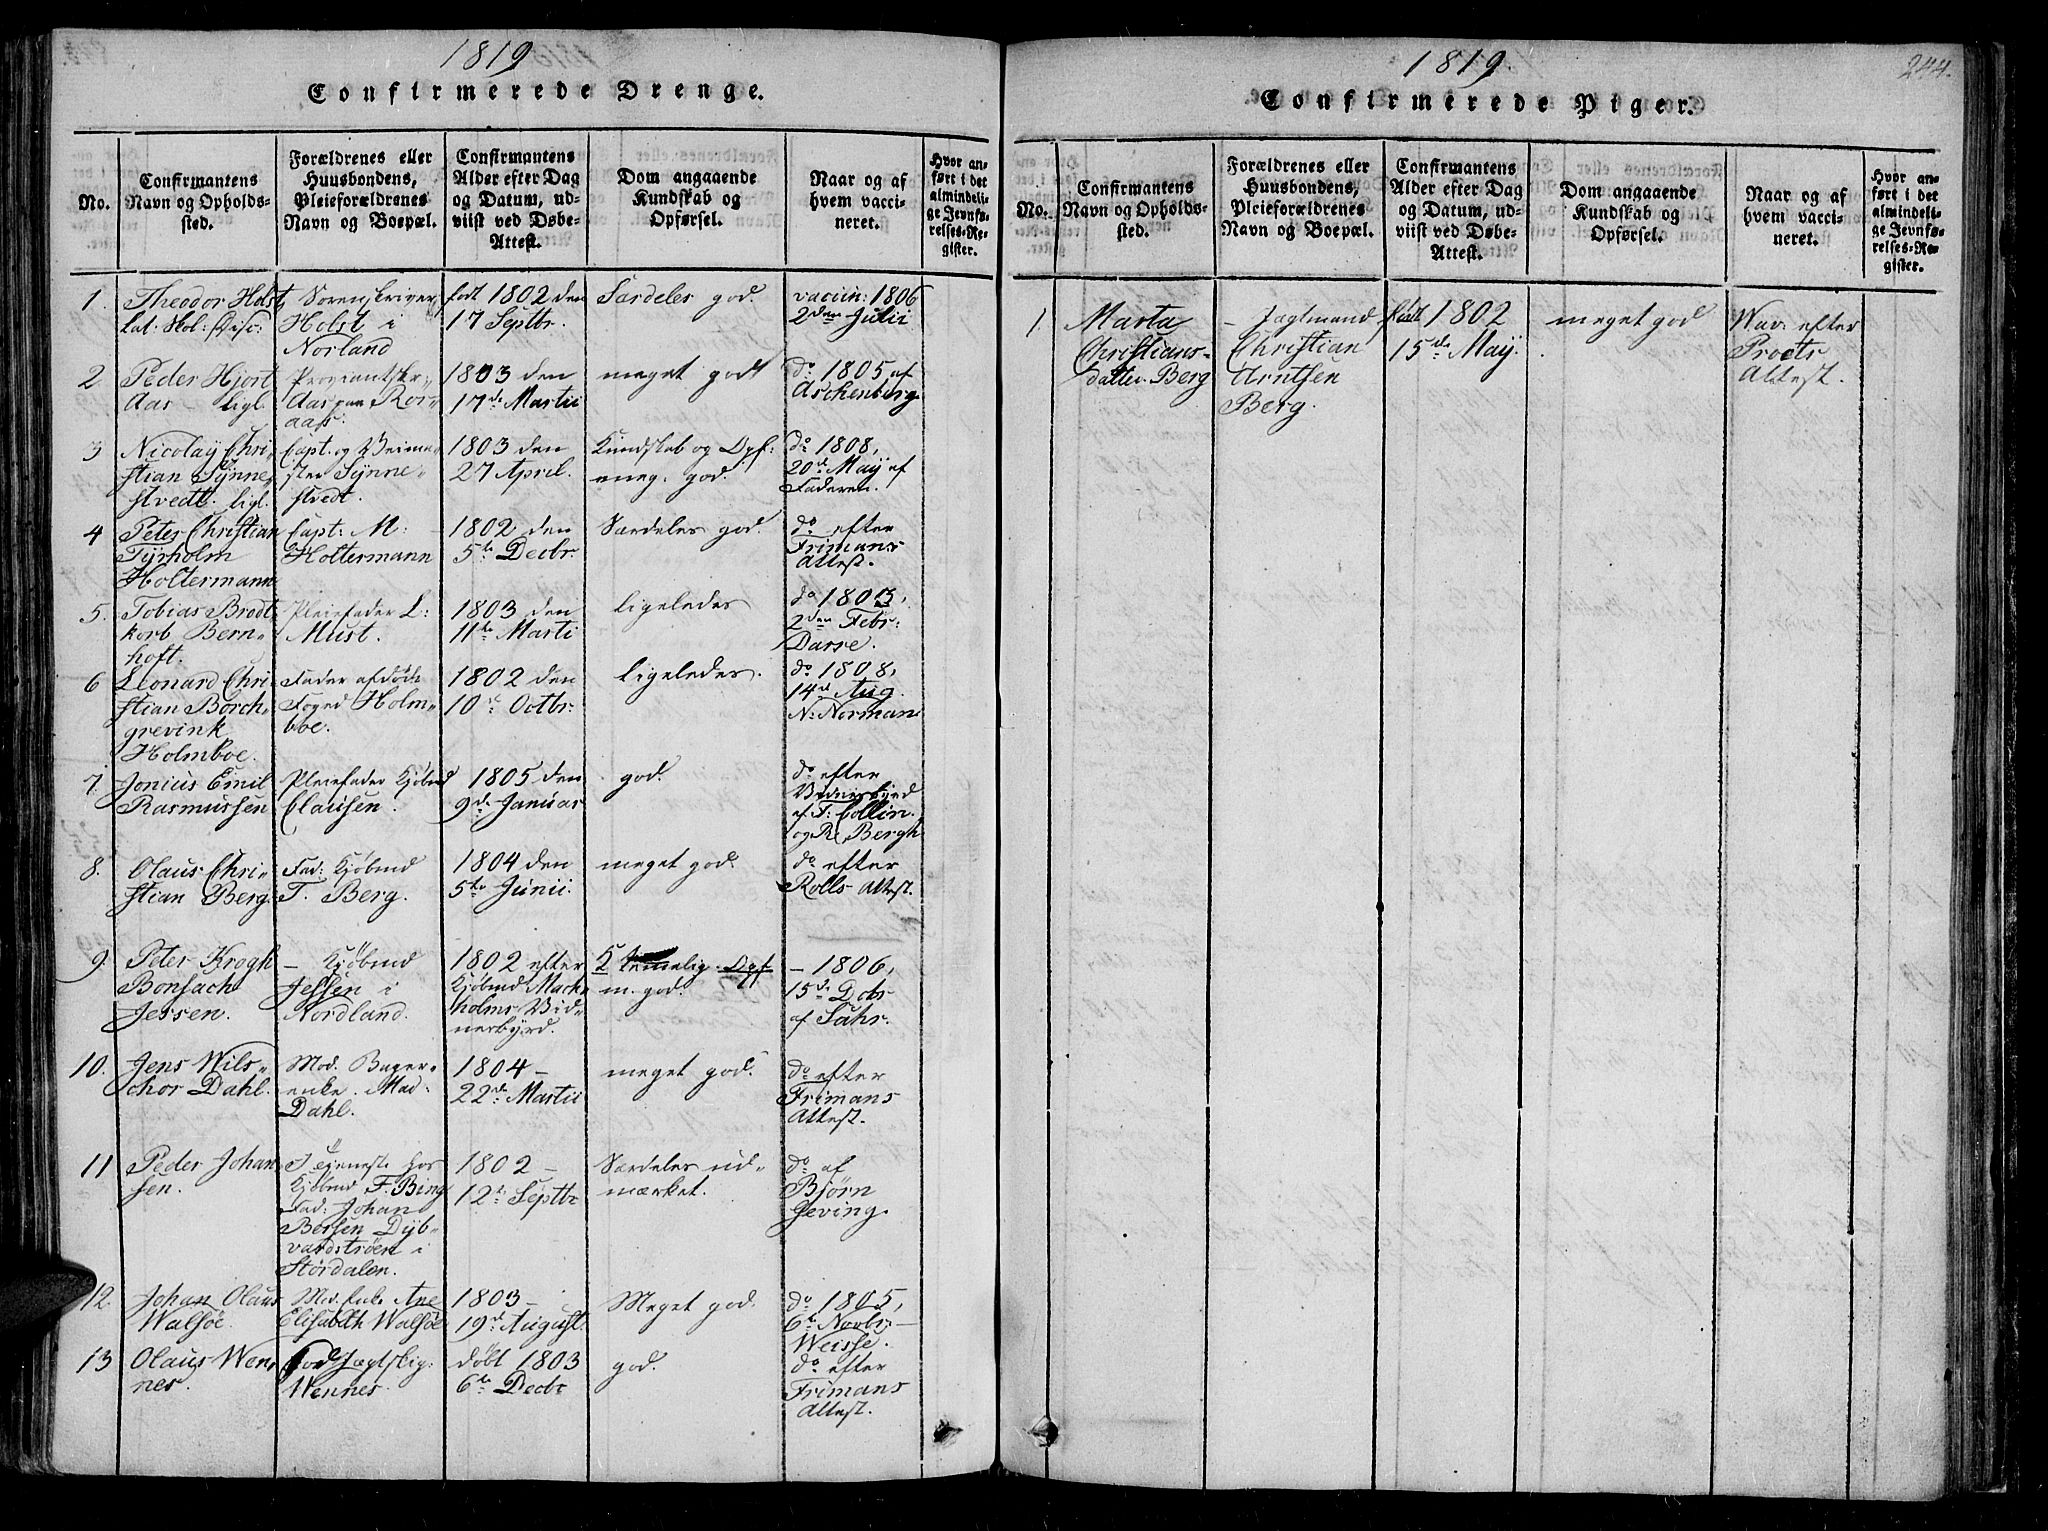 1819
Confirmerede Drenge.
No.
Confirmantens Navn og Opholdssted.
Forældrenes eller Huusbondens, Pleieforældrenes Navn og Boepæl.
Confirmantens Alder efter Dag og Datum, udviist ved Døbe-Attest.
Dom angaaende Kundskab og Opførsel.
Naar og af hvem vaccineret.
Hvor anført i det almindelige Jevnførelses-Register.
1.
Theodor Holst
lat: Skol: Disc:
Sorenskriver
Holst i
Norland
født 1802 den
17 Septbr.
Særdeles god.
vaccin: 1806
2den Julii
2.
Peder Hjort
Aas - ligl.
Proviantskr.
Aas paa Rør-
aas.
1803 den
17de Martii
meget godt
do 1805 af
Aschenberg.
3
Nicolay Chri-
stian Synne-
stvedt. ligl.
Capt. og Veime-
ster Synne-
stvedt.
1803 den
27 April.
Kundskab og Opf:
meg. god.
do 1808,
20de May af
Faderen.
4
Peter Christian
Tyrholm
Holtermann
Capt: M:
Holtermann
1802 den
5te Decbr.
Særdeles god.
do efter
Frimans
Attest.
5.
Tobias Brodt-
korb Bern-
hoft.
Pleiefader L:
Must.
1803 den
11te Marti
ligeledes
do 1803,
2den Febr:
Darre.
6
Leonard Chri-
stian Borch-
grevink
Holmboe.
Fader afdøde
Foged Holm-
boe.
1802 den
10de Octbr:
Ligeledes.
do 1808,
14de Aug.
N: Norman
7.
Jonius Emil
Rasmussen
Pleiefader Kjøbmd
Clausen.
1805 den
9de Januar
god.
do efter
Vidnesbyrd
af F: Collin.
og R: Bergh
8.
Olaus Chri-
stian Berg.
Fad: Kjøbmd
T. Berg.
1804 den
5te Junii.
meget god.
do efter
Rolls Attest.
9.
Peter Krogh
Bonsach
Jessen.
- Kjøbmd
Jessen i
Nordland.
1802 efter
Kjøbmd Mack-
holms Vid-
nesbyrd.
K temelig. Opf
m. god.
- 1806,
15de Dcbr
af Sahr.
10.
Jens Wils-
chor Dahl.
Mod. Bager-
enke Mad.
Dahl.
1804 -
22de Martii
meget god.
do efter
Frimans
Attest.
11
Peder Johan
sen.
I tjeneste hos
Kjøbmd F. Bing
Fad: Johan
Bersen Dyb-
vardstrøen i
Størdalen.
1802 -
12te Septbr
Særdeles ud-
mærket.
do af
Bjørn
Geving.
12.
Johan Olaus
Walsøe.
Mod. Enke Ane
Elisabeth Walsøe
1803 -
19de August.
Meget god.
do 1805,
6te Novbr -
Weisse.
13
Olaus Wen-
nes.
Fad Jægtskip:
Wennes.
døbt 1803
6te Decbr
god.
do efter
Frimans
Attest.
1819.
244.
Confirmerede Piger.
No.
Confirmantens Navn og Opholdssted.
Forældrenes eller Huusbondens, Pleieforældrenes Navn og Boepæl.
Confirmantens Alder efter Dag og Datum, udviist ved Døbe-Attest.
Dom angaaende Kundskab og Opførsel.
Naar og af hvem vaccineret.
Hvor anført i det almindelige Jevnførelses-Register.
1.
Marta
Christians-
datter Berg
- Jagtmand
Christian
Arntsen
Berg.
født 1802
15de May.
meget god
Vac: efter
Proets
Attest.